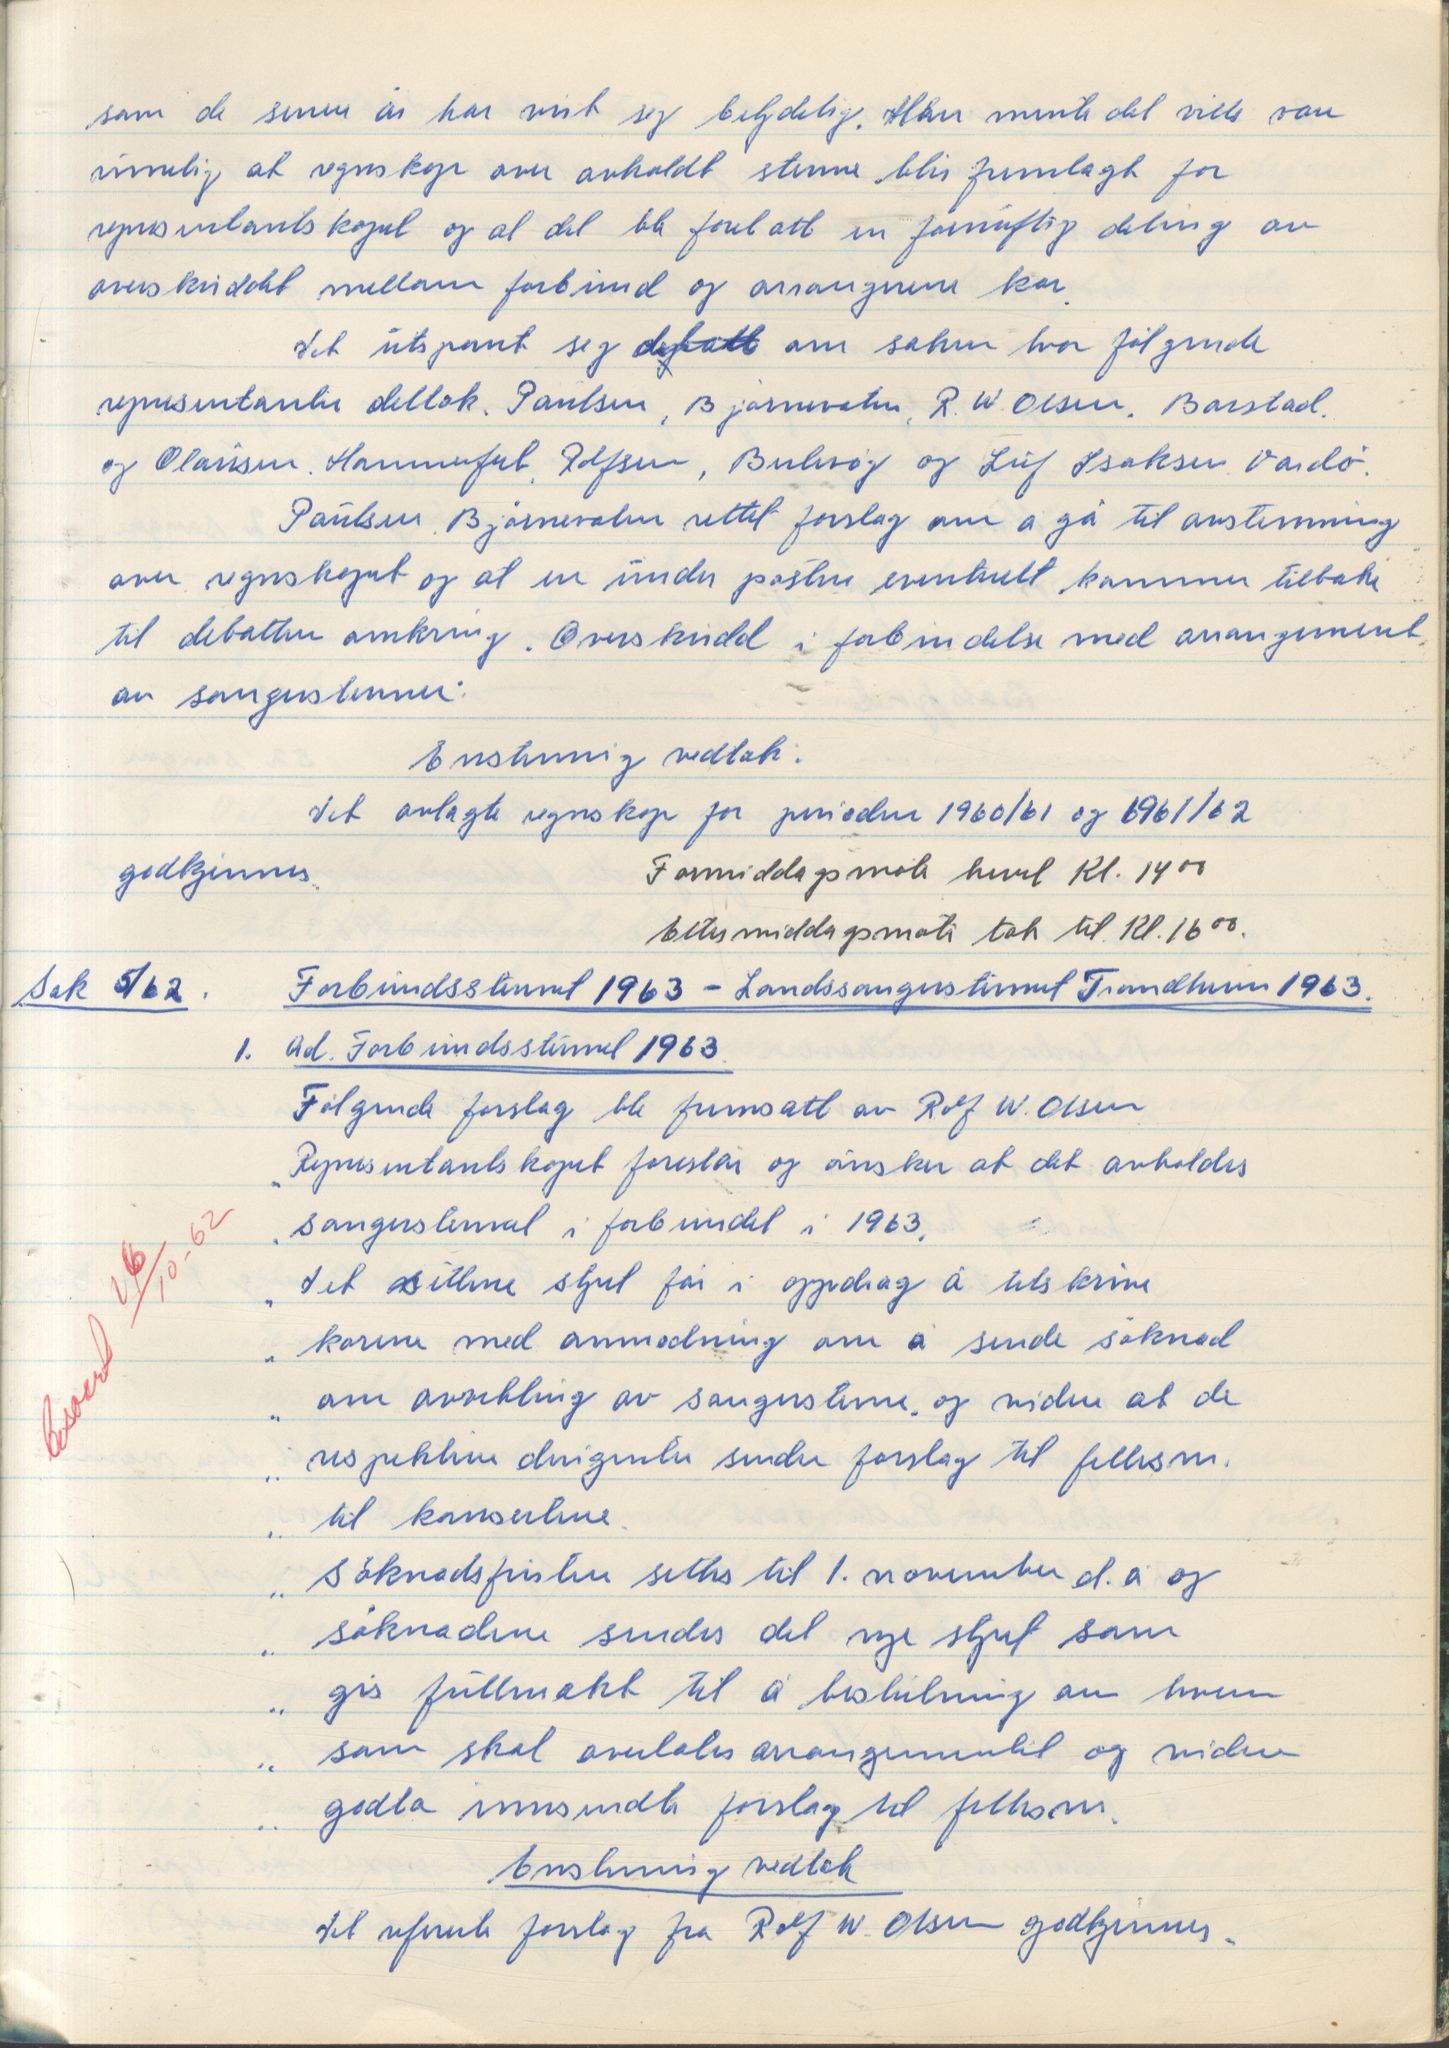 som de senere år har vist seg betydelig. Han mente det ville være
rimelig at regnskap over avholdt stevne blir fremlagt for
representantskapet og at det ble foretatt en fornuftig deling av
overskuddet mellom forbund og arrangerene kor.
Det utspant seg debatt om saken hvor følgende
representanter deltok. Paulsen, Bjørnevatn, R. W. Olsen. Barstad.
og Olaussen. Hammerfest, Rolfsen, Berlevåg og Leif Isaksen Vardø.
Paulsen Bjørnevatn rettet forslag om å gå til avstemming
over regnskapet og at en under posten eventuelt kommer tilbake
til debatten omkring. Overskudd i forbindelse med arrangement
av sangerstevner.
Enstemmig vedtok:
Det avlagte regnskap for perioden 1960/61 og 1961/62
godkjennes.
Formiddagsmøte hevet Kl. 14⁰⁰
Ettermiddagsmøte tok til Kl. 16⁰⁰.
Sak 5/62. Forbundsstevnet 1963 - Landssangerstevnet Trondheim 1963.
1. Ad. Forbundsstevnet 1963.
Følgende forslag ble fremsatt av Rolf W. Olsen
„ Representantskapet foreslår og ønsker at det avholdes
„ sangerstevnet i forbundet i 1963.
„ Det sittene styret får i oppdrag å tilskrive
„ korene med anmodning om å sende søknad
„ om avvikling av sangerstevne. og videre at de
„ respektive dirigenter sender forslag til fellesnr.
„ til konsertene.
„ Søknadsfristen settes til 1. november d.å og
„ søknadene sendes det nye styret som
„ gis fullmakt til å beslutning om hvem
„ som skal overlates arrangementet og videre
„ godta innsendte forslag til fellesnr.
Enstemmig vedtok
Det refererte forslag fra Rolf W. Olsen godkjennes.
Besvart 26/10-62